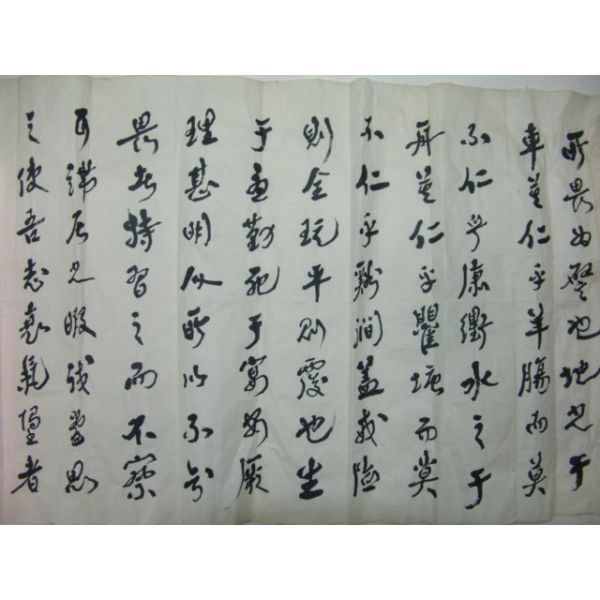 所畏為譬也地之于
車莫仁乎羊腸而莫
不仁于康衢水之于
舟莫仁乎瞿塘而莫
不仁乎溪澗蓋戒險
則全玩平則覆也生
于憂勤死于宴安厥
理甚明人所以不知
畏者特習之而不察
耳居之暇試嘗思
之使吾志衰氣墮者